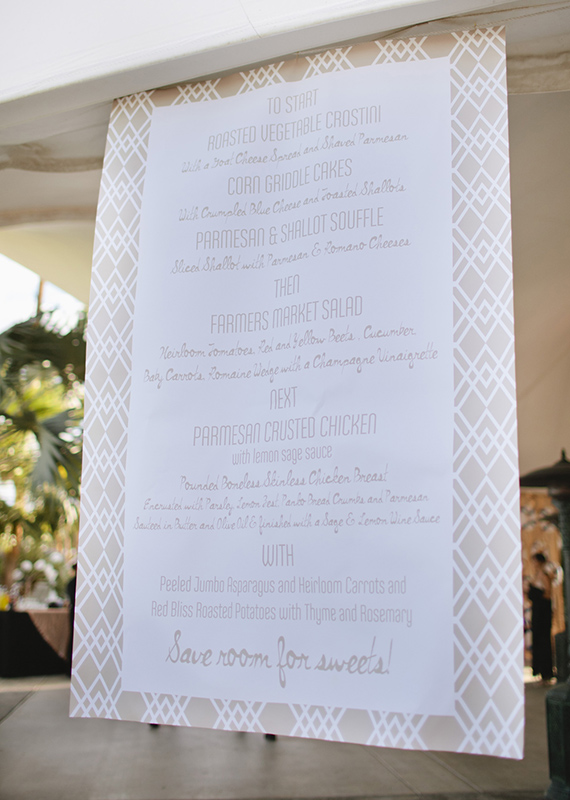 TO START
ROASTED VEGETABLE CROSTINI
With a Goat Cheese Spread and Shaved Parmesan
CORN GRIDDLE CAKES
With Crumbled Blue Cheese and Toasted Shallots
PARMESAN & SHALLOT SOUFFLE
Sliced Shallot with Parmesan & Romano Cheeses
THEN
FARMERS MARKET SALAD
Heirloom Tomatoes, Red and Yellow Beets, Cucumber
Baby Carrots, Romaine Wedge with a Champagne Vinaigrette
NEXT
PARMESAN CRUSTED CHICKEN
with lemon sage sauce
Pounded Boneless Skinless Chicken Breast
Encrusted with Parsley, Lemon Zest, Panko Bread Crumbs and Parmesan
Sauteed in Butter and Olive Oil & finished with a Sage & Lemon Wine Sauce
WITH
Peeled Jumbo Asparagus and Heirloom Carrots and
Red Bliss Roasted Potatoes with Thyme and Rosemary
Save room for sweets!